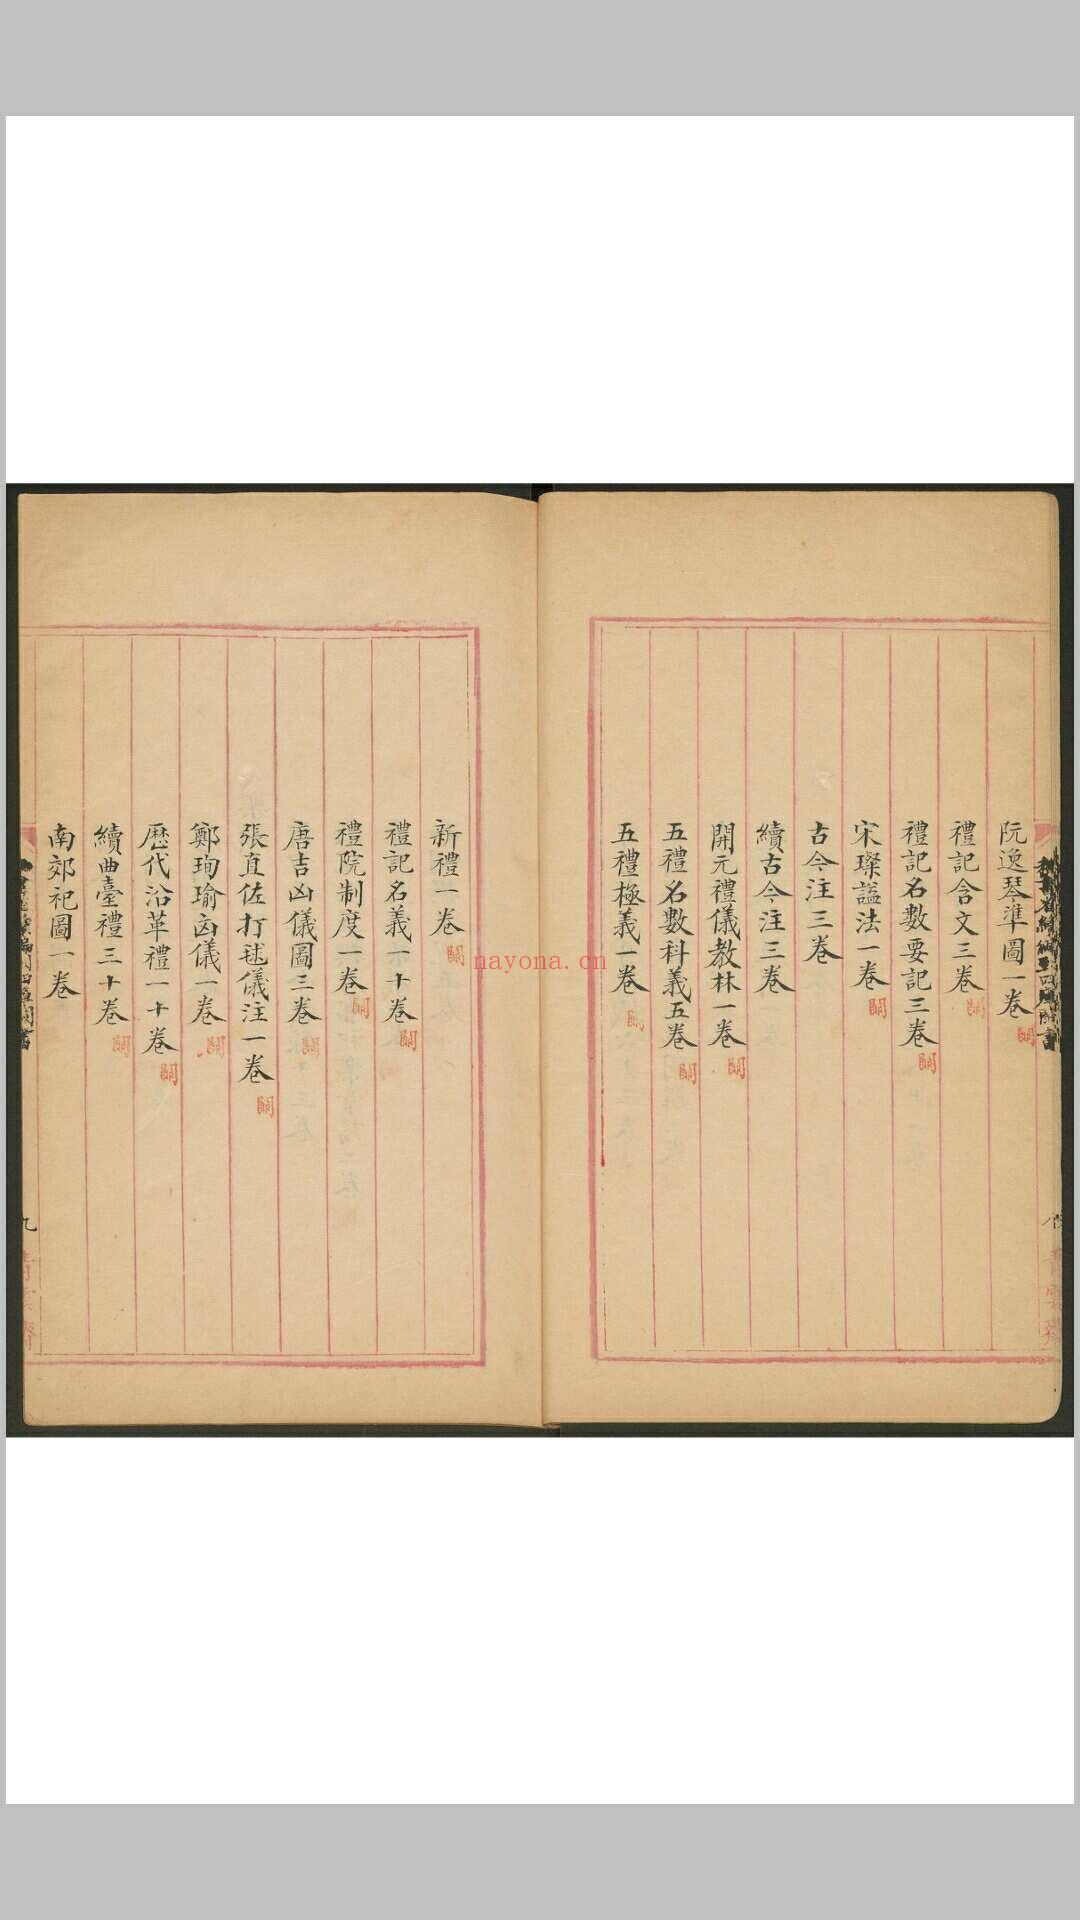 阮逸琴準圖一卷 闕
禮記含文三卷 闕
禮記名數要記三卷 闕
宋璨謚法一卷 闕
古今注三卷
續古今注三卷
開元禮儀教林一卷 闕
五禮名數科義五卷 闕
五禮極義一卷 闕
新禮一卷 闕
禮記名義一十卷 闕
禮院制度一卷 闕
唐吉凶儀圖三卷 闕
張直佐打毬儀注一卷 闕
鄭珣瑜凶儀一卷 闕
歷代沿革禮一十卷 闕
續曲臺禮三十卷 闕
南郊祀圖一卷
九
nayona.cn